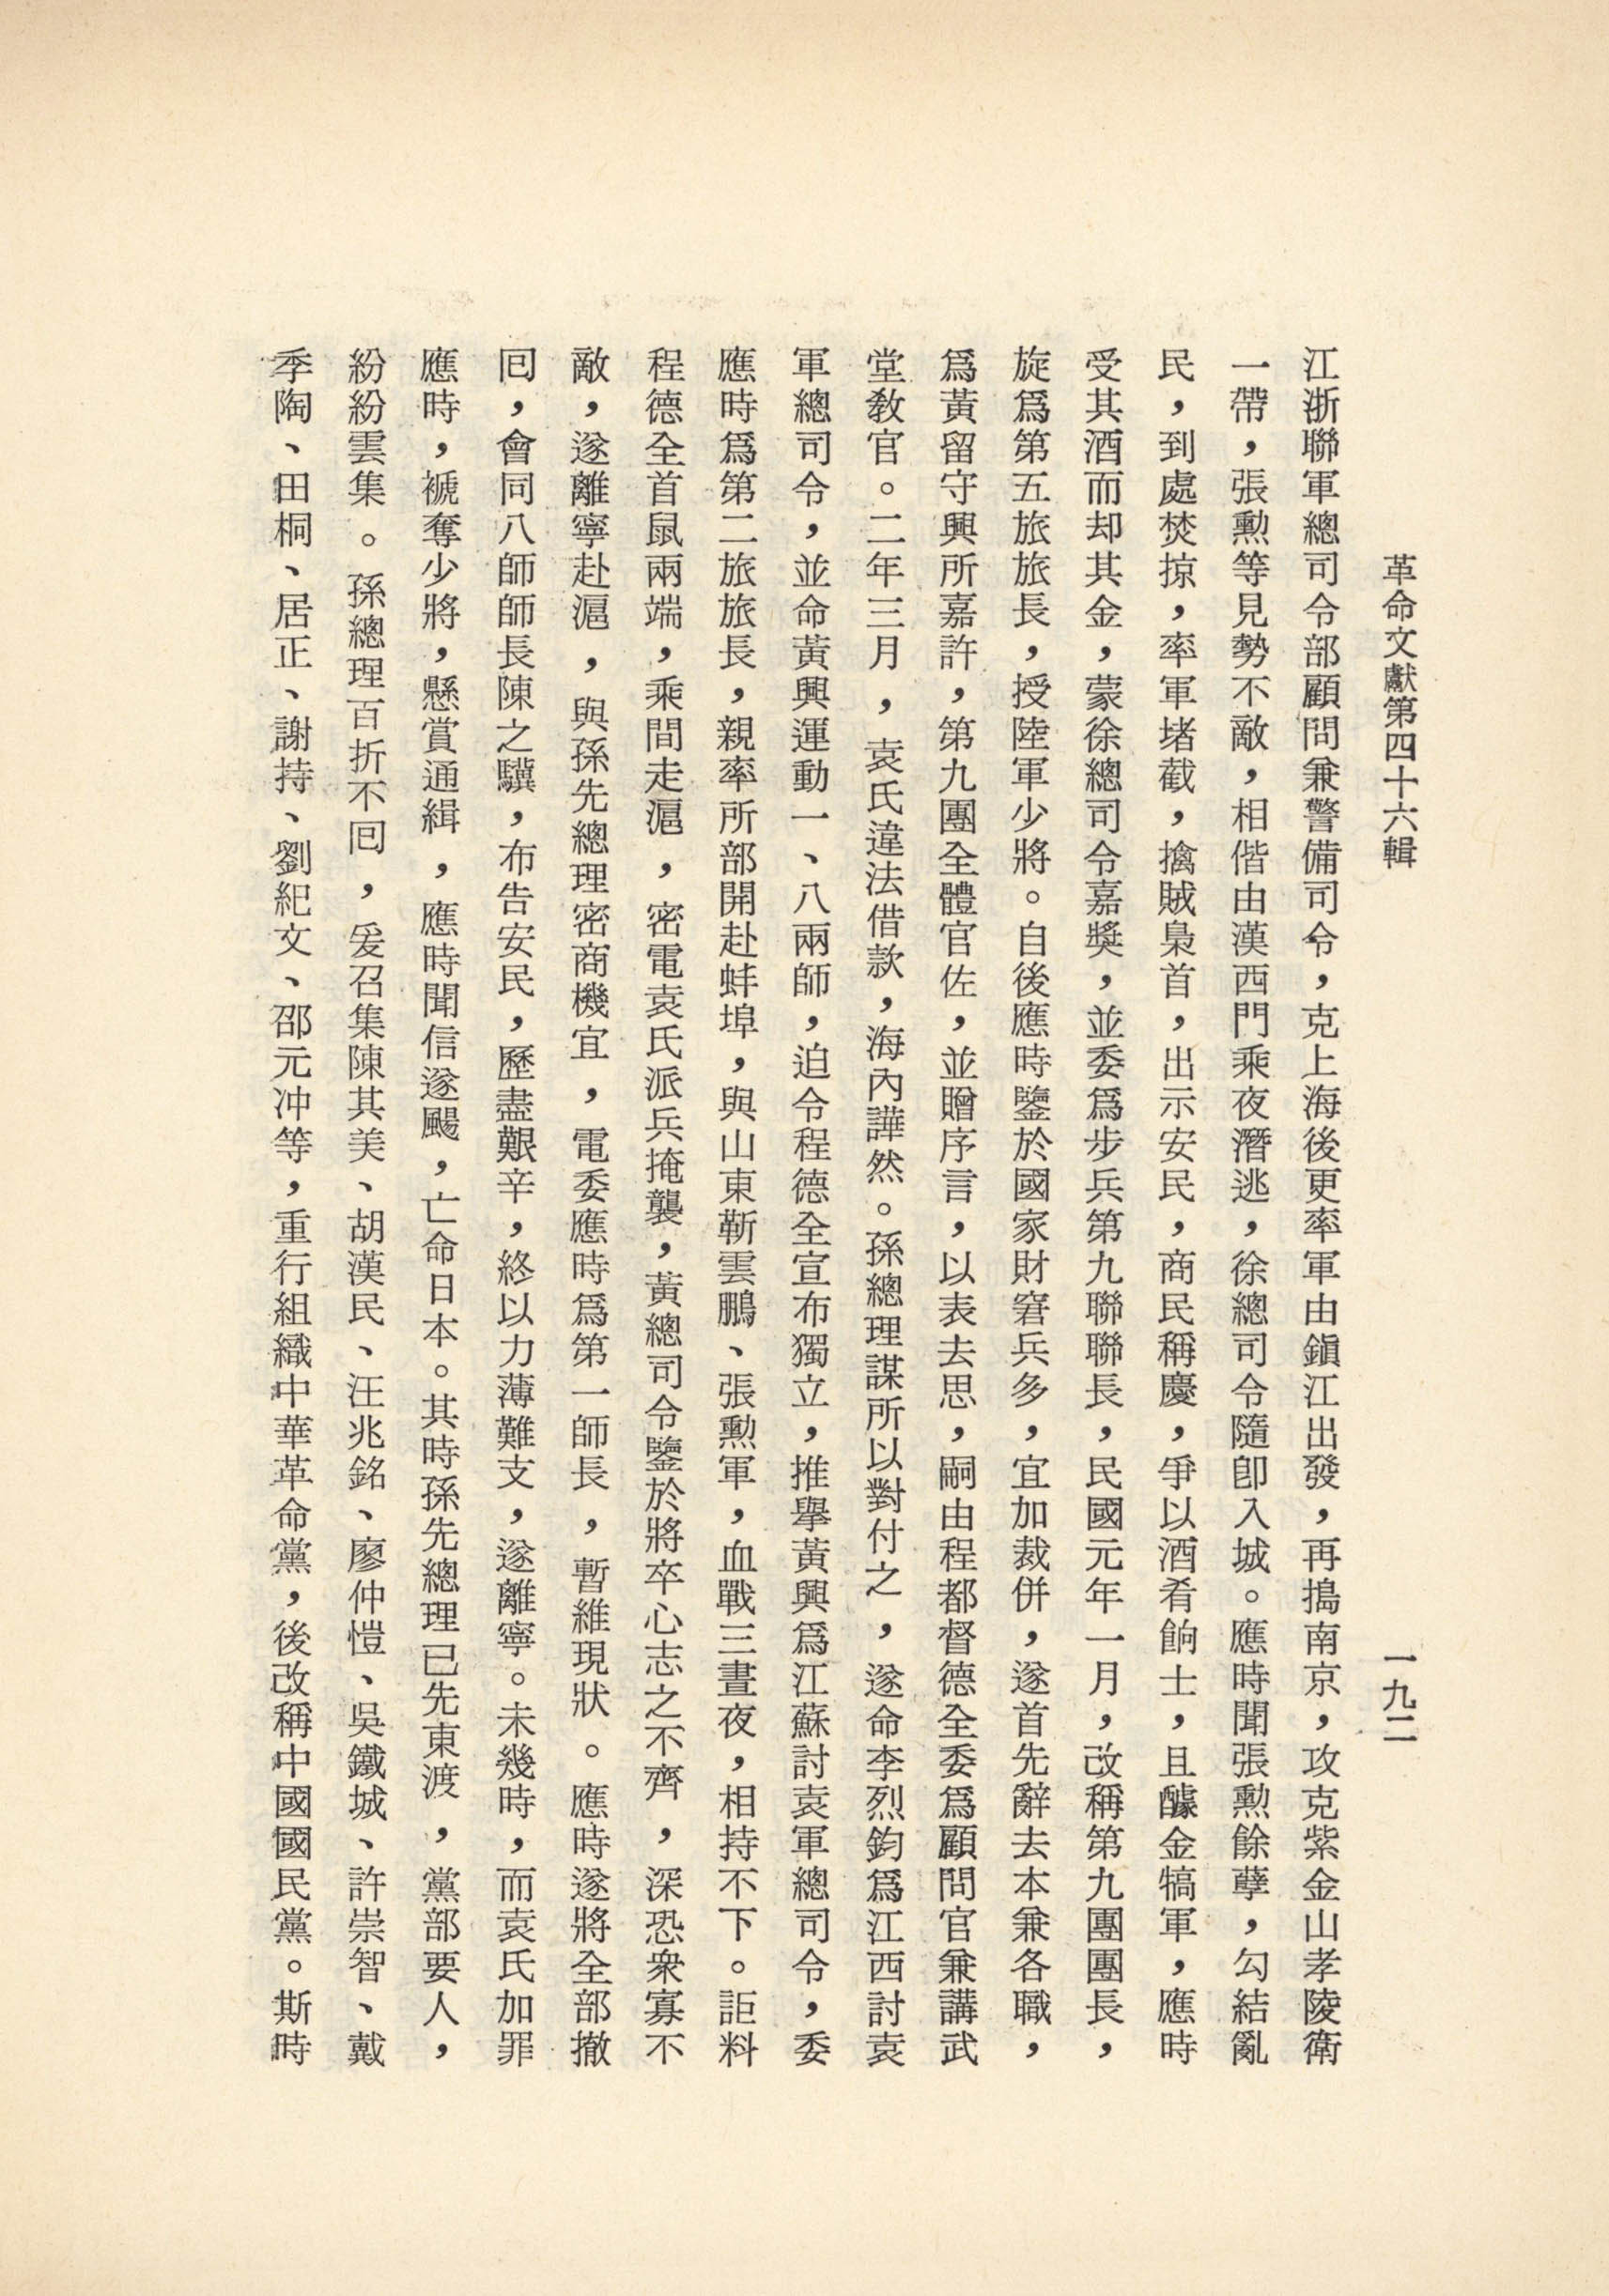 革命文獻第四十六輯
一九二
江浙聯軍總司令部顧問兼警備司令，克上海後更率軍由鎭江出發，再搗南京，攻克紫金山孝陵衛
一帶，張勳等見勢不敵，相偕由漢西門乘夜潛逃，徐總司令隨卽入城。應時聞張勳餘孽，勾結亂
民，到處焚掠，率軍堵截，擒賊梟首，出示安民，商民稱慶，爭以酒肴餉士，且醵金犒軍，應時
受其酒而却其金，蒙徐總司令嘉獎，並委爲步兵第九聯聯長，民國元年一月，改稱第九團團長，
旋爲第五旅旅長，授陸軍少將。自後應時鑒於國家財窘兵多，宜加裁併，遂首先辭去本兼各職，
爲黃留守興所嘉許，第九團全體官佐，並贈序言，以表去思，嗣由程都督德全委爲顧問官兼講武
堂敎官。二年三月，袁氏違法借款，海內譁然。孫總理謀所以對付之，遂命李烈鈞爲江西討袁
軍總司令，並命黃興運動一、八兩師，迫令程德全宣布獨立，推擧黃興爲江蘇討袁軍總司令，委
應時爲第二旅旅長，親率所部開赴蚌埠，與山東靳雲鵬、張勳軍，血戰三晝夜，相持不下。詎料
程德全首鼠兩端，乘間走滬，密電袁氏派兵掩襲，黃總司令鑒於將卒心志之不齊，深恐衆寡不
敵，遂離寧赴滬，與孫先總理密商機宜，電委應時爲第一師長，暫維現狀。應時遂將全部撤
囘，會同八師師長陳之驥，布告安民，歷盡艱辛，終以力薄難支，遂離寧。未幾時，而袁氏加罪
應時，褫奪少將，懸賞通緝，應時聞信遂颺，亡命日本。其時孫先總理已先東渡，黨部要人，
紛紛雲集。孫總理百折不囘，爰召集陳其美、胡漢民、汪兆銘、廖仲愷、吳鐵城、許崇智、戴
季陶、田桐、居正、謝持、劉紀文、邵元冲等，重行組織中華革命黨，後改稱中國國民黨。斯時